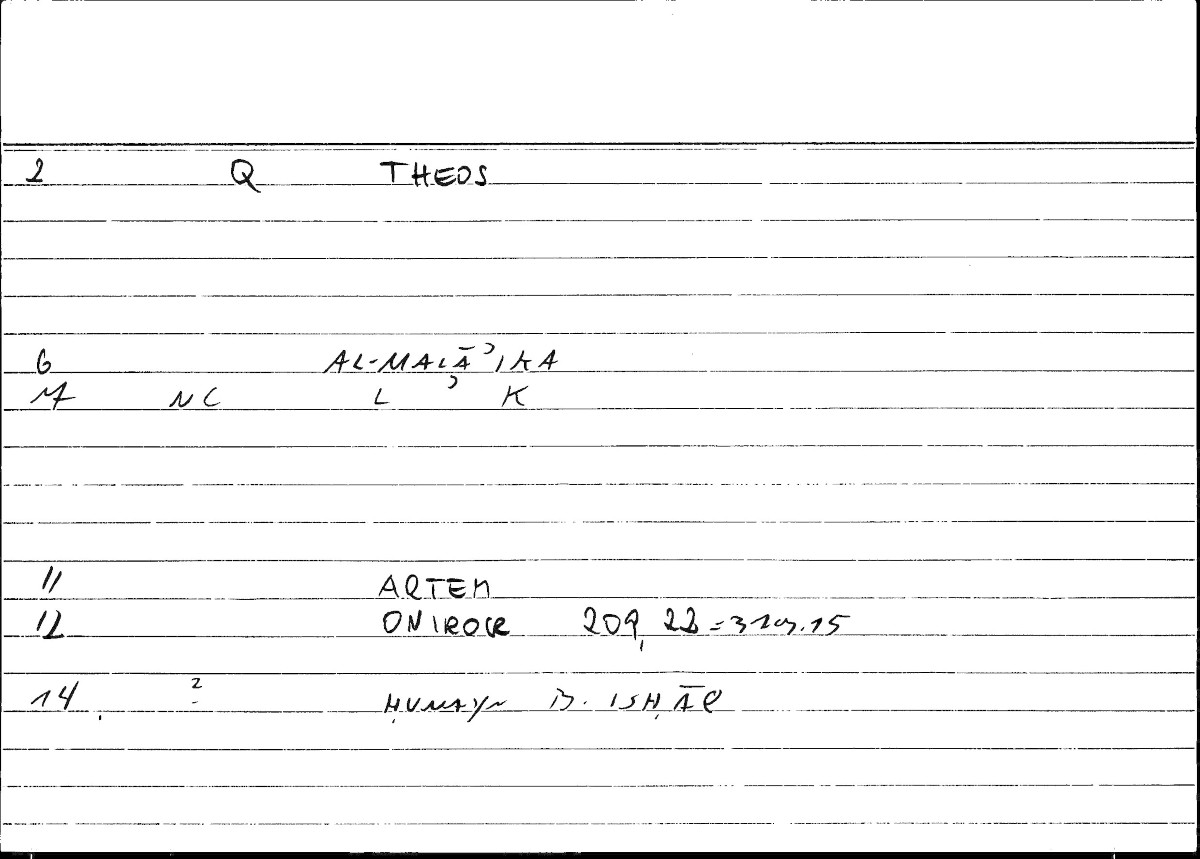 2 Q THEOS
6 AL-MALĀʾIKA
7 NC L ʾ K
11 ARTEM
12 ONIROCR 209, 22 = 319.15
14 2 ḤUNAYN B. ISḤĀQ